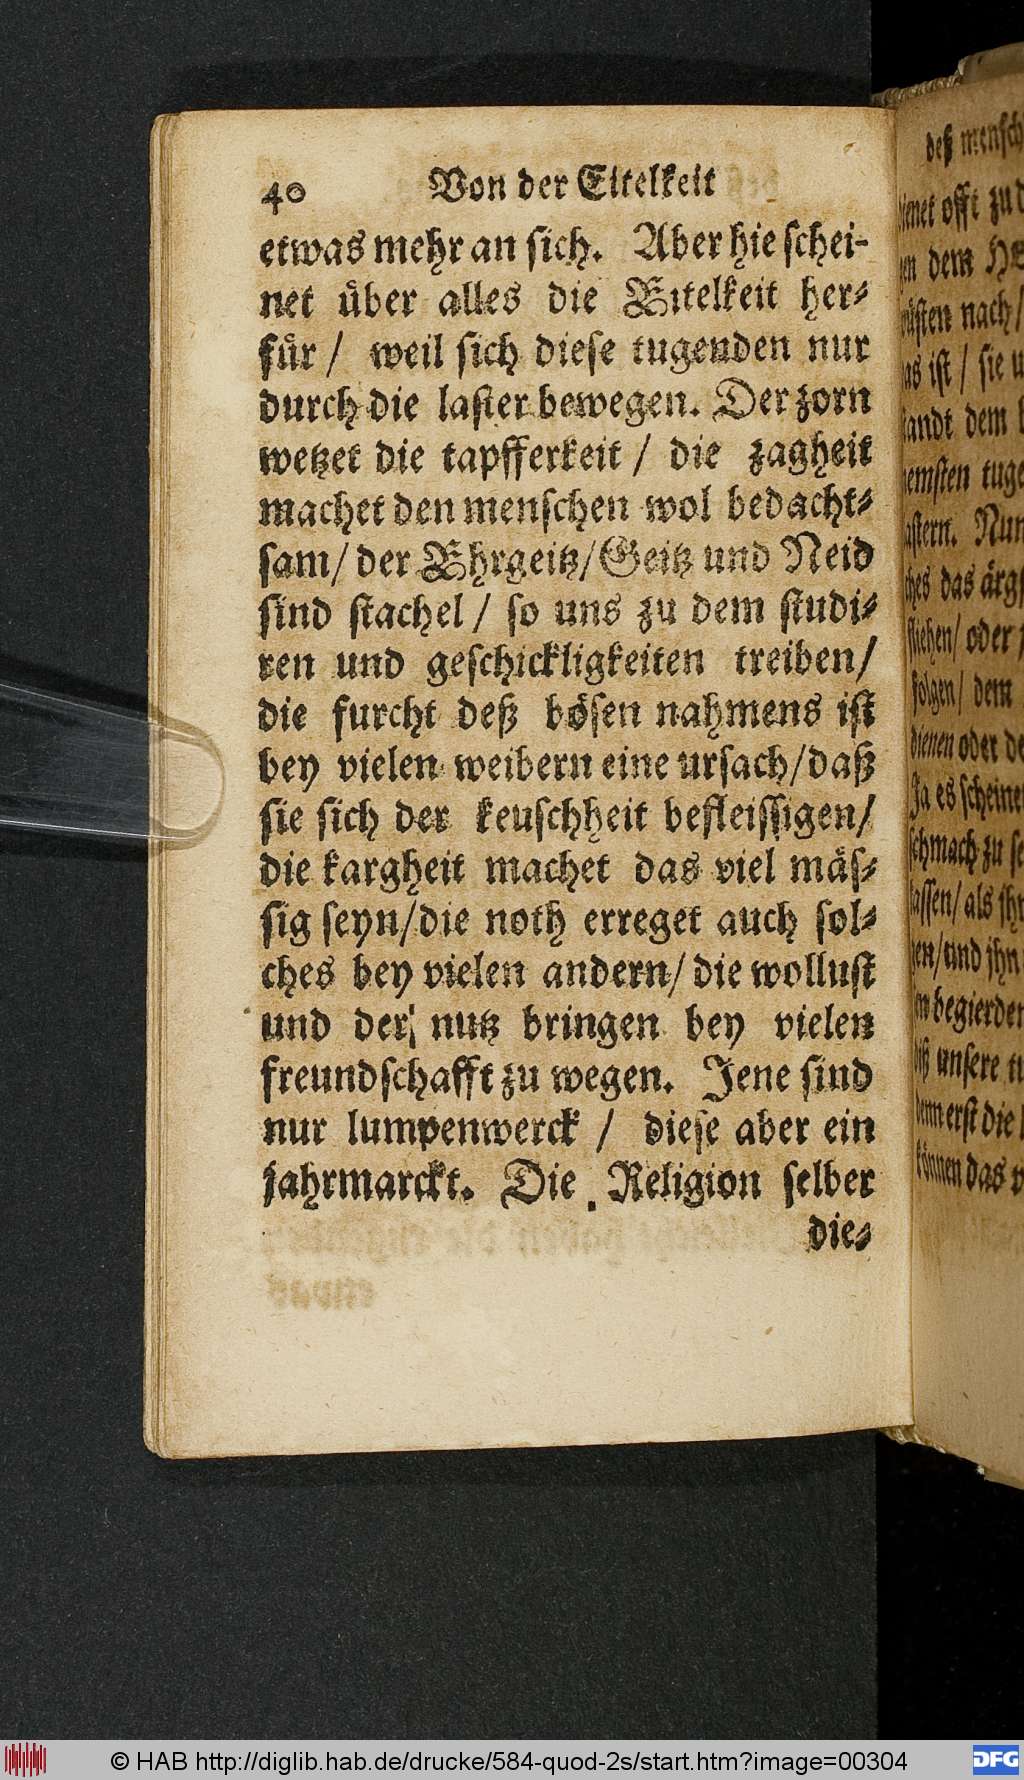 40 Von der Eitelkeit
etwas mehr an sich. Aber hie schei-
net über alles die Eitelkeit her-
für / weil sich diese tugenden nur
durch die laster bewegen. Der zorn
wetzet die tapfferkeit / die zagheit
machet den menschen wol bedacht-
sam / der Ehrgeitz / Geitz und Neid
sind stachel / so uns zu dem studi-
ren und geschickligkeiten treiben /
die furcht deß bösen nahmens ist
bey vielen weibern eine ursach / daß
sie sich der keuschheit befleissigen /
die kargheit machet das viel mäs-
sig seyn / die noth erreget auch sol-
ches bey vielen andern / die wollust
und der nutz bringen bey vielen
freundschafft zu wegen. Jene sind
nur lumpenwerck / diese aber ein
jahrmarckt. Die Religion selber
die-
deß
offt zu
dem
nach /
ist / sie
dem
tuge
Nun
das
oder
dem
dienen oder
Ja es
zu
als
und ihn
begierden
unsere
erst die
können das
© HAB http://diglib.hab.de/drucke/584-quod-2s/start.htm?image=00304
DFG